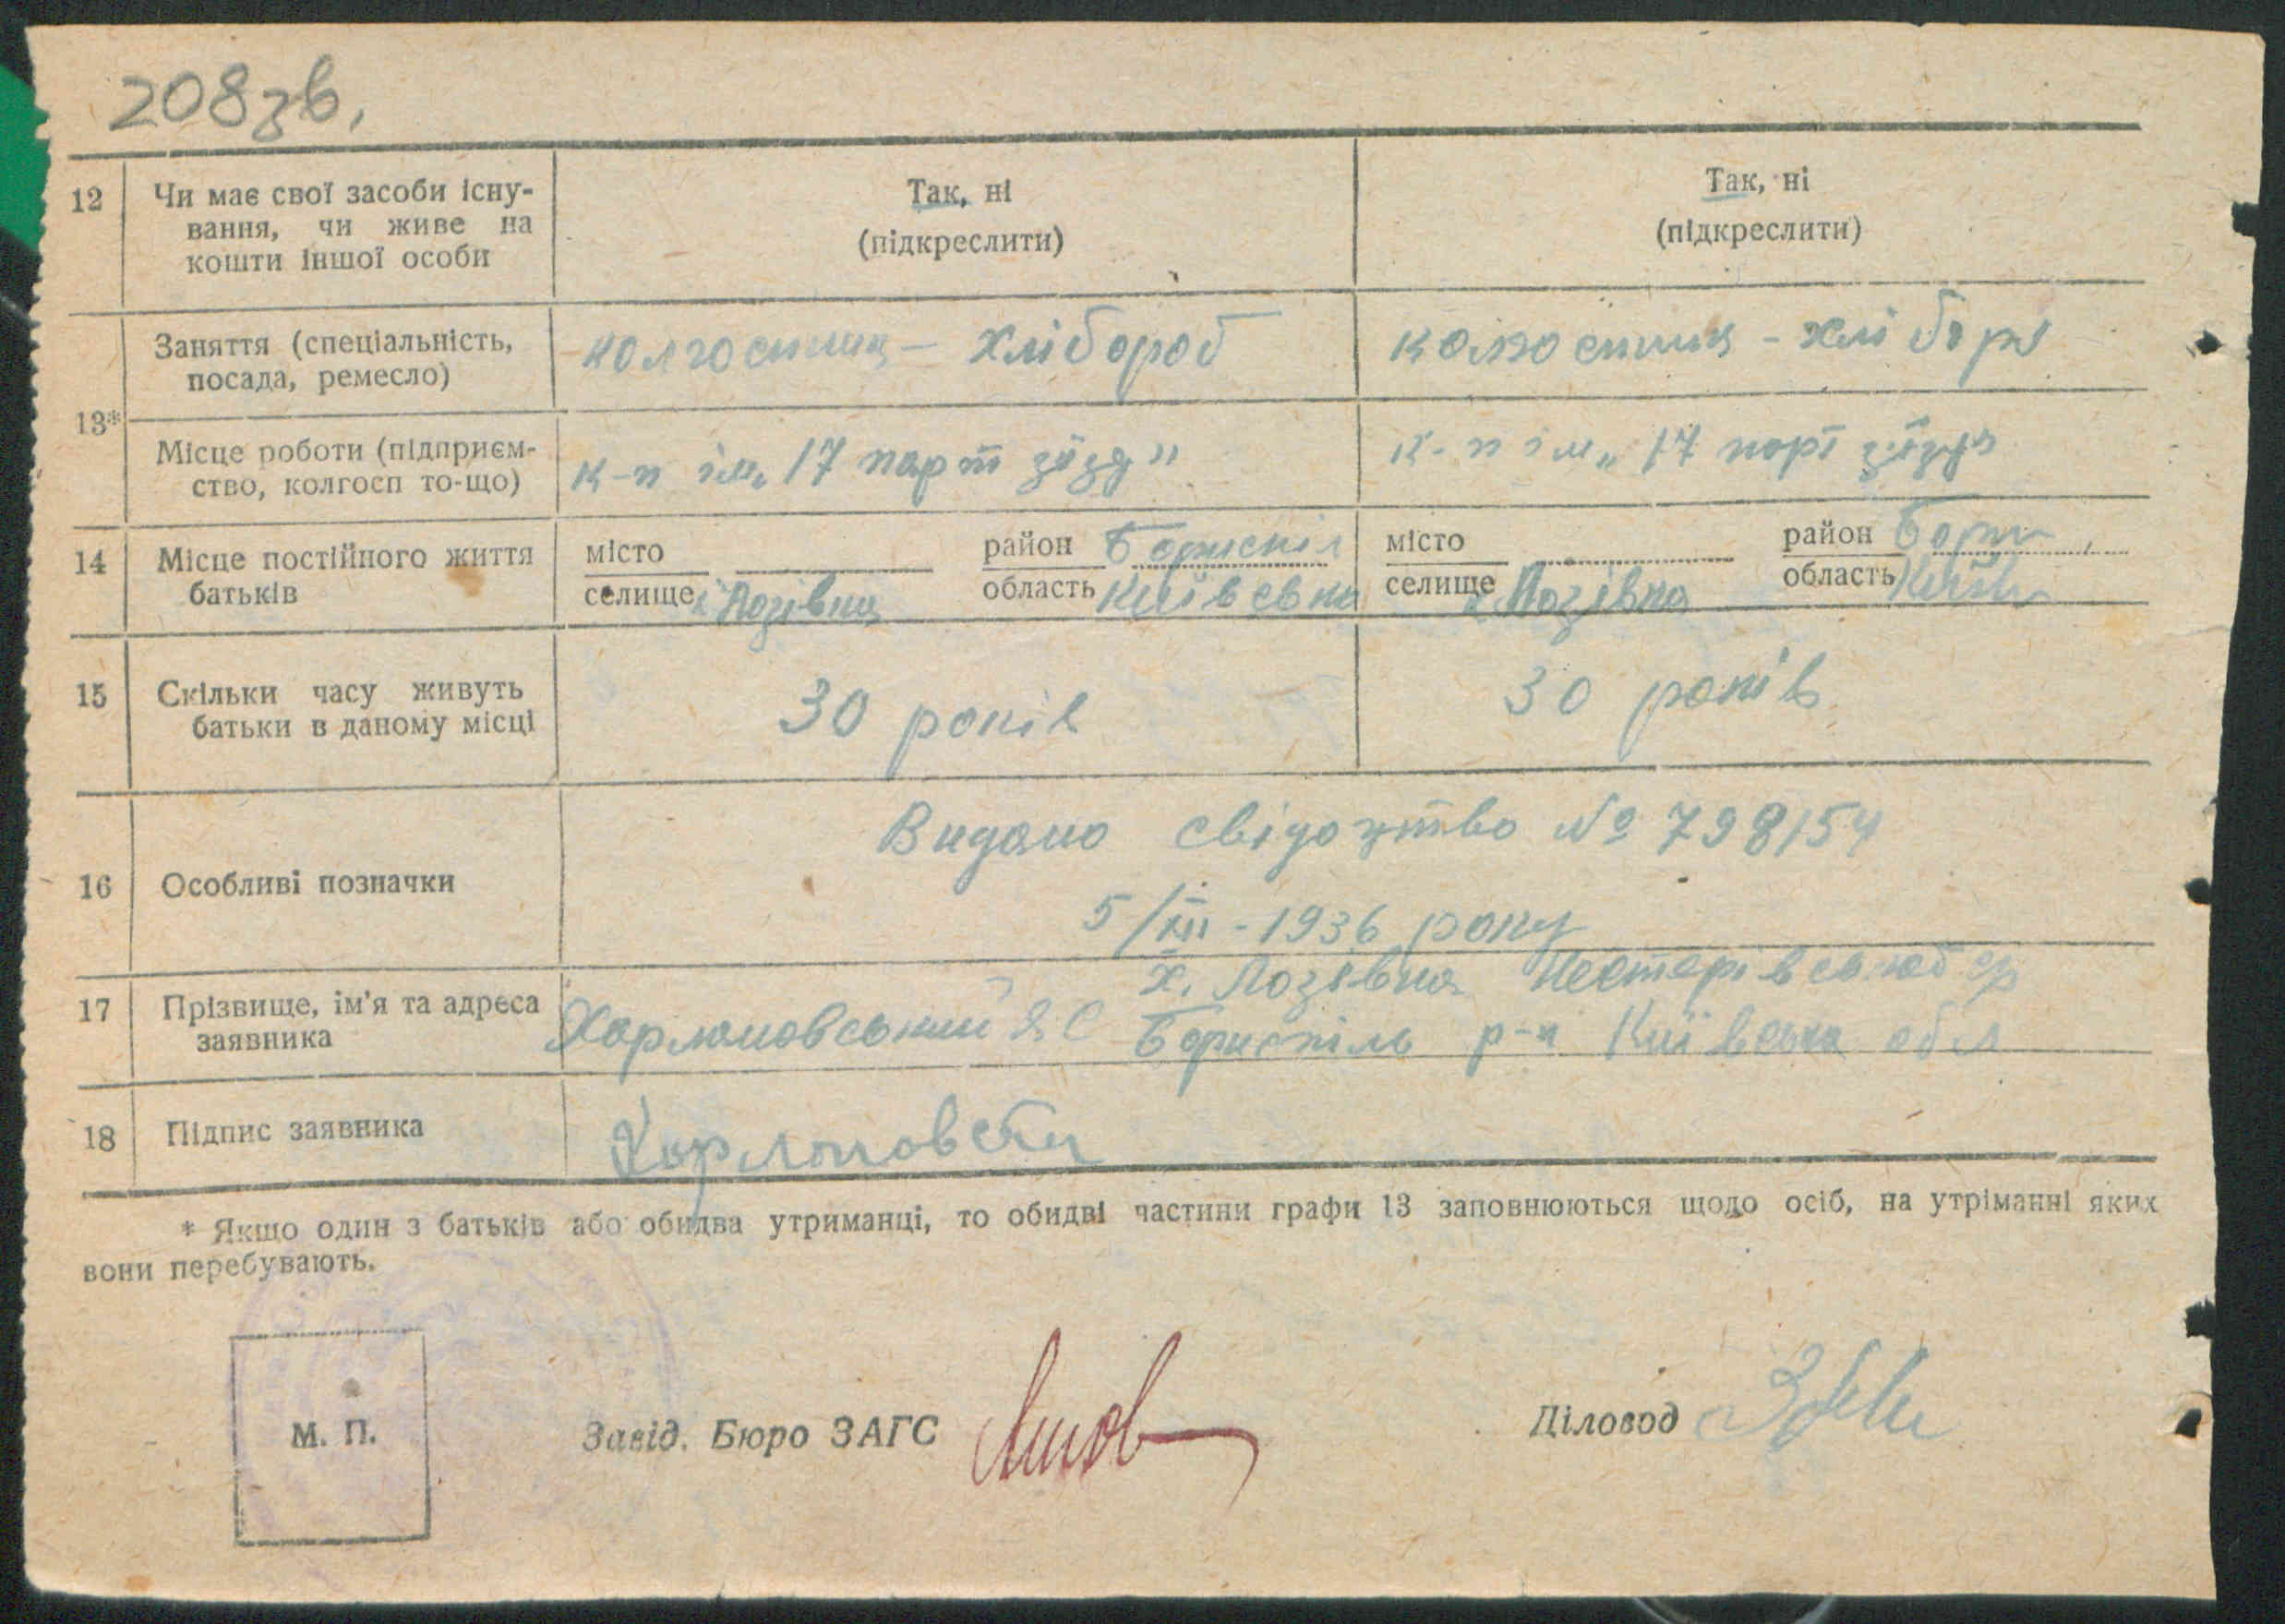 208зв.
12 Чи має свої засоби існу-
вання, чи живе на
кошти іншої особи
Так, ні
(підкреслити)
Так, ні
(підкреслити)
13*
Заняття (спеціальність,
посада, ремесло)
колгоспник – хлібороб
колгоспник - хлібороб
Місце роботи (підприєм-
ство, колгосп то-що)
к-п ім. „17 парт зїзд"
к-п ім „17 парт зїзд"
14 Місце постійного життя
батьків
місто
селище х. Лозівка
район Бориспіл
область Київська
місто
селище х. Лозівка
район Бори
область Київ
15 Скільки часу живуть
батьки в даному місці
30 років
30 років
16 Особливі позначки
Видано свідоцтво № 798154
5/III - 1936 року
17 Прізвище, ім'я та адреса
заявника
Хармановський Я. С
х. Лозівка
Бориспіль р-н Київська обл
18 Підпис заявника
* Якщо один з батьків або обидва утриманці, то обидві частини графи 13 заповнюються щодо осіб, на утріманні яких
вони перебувають.
М. П.
Завід. Бюро ЗАГС
Діловод